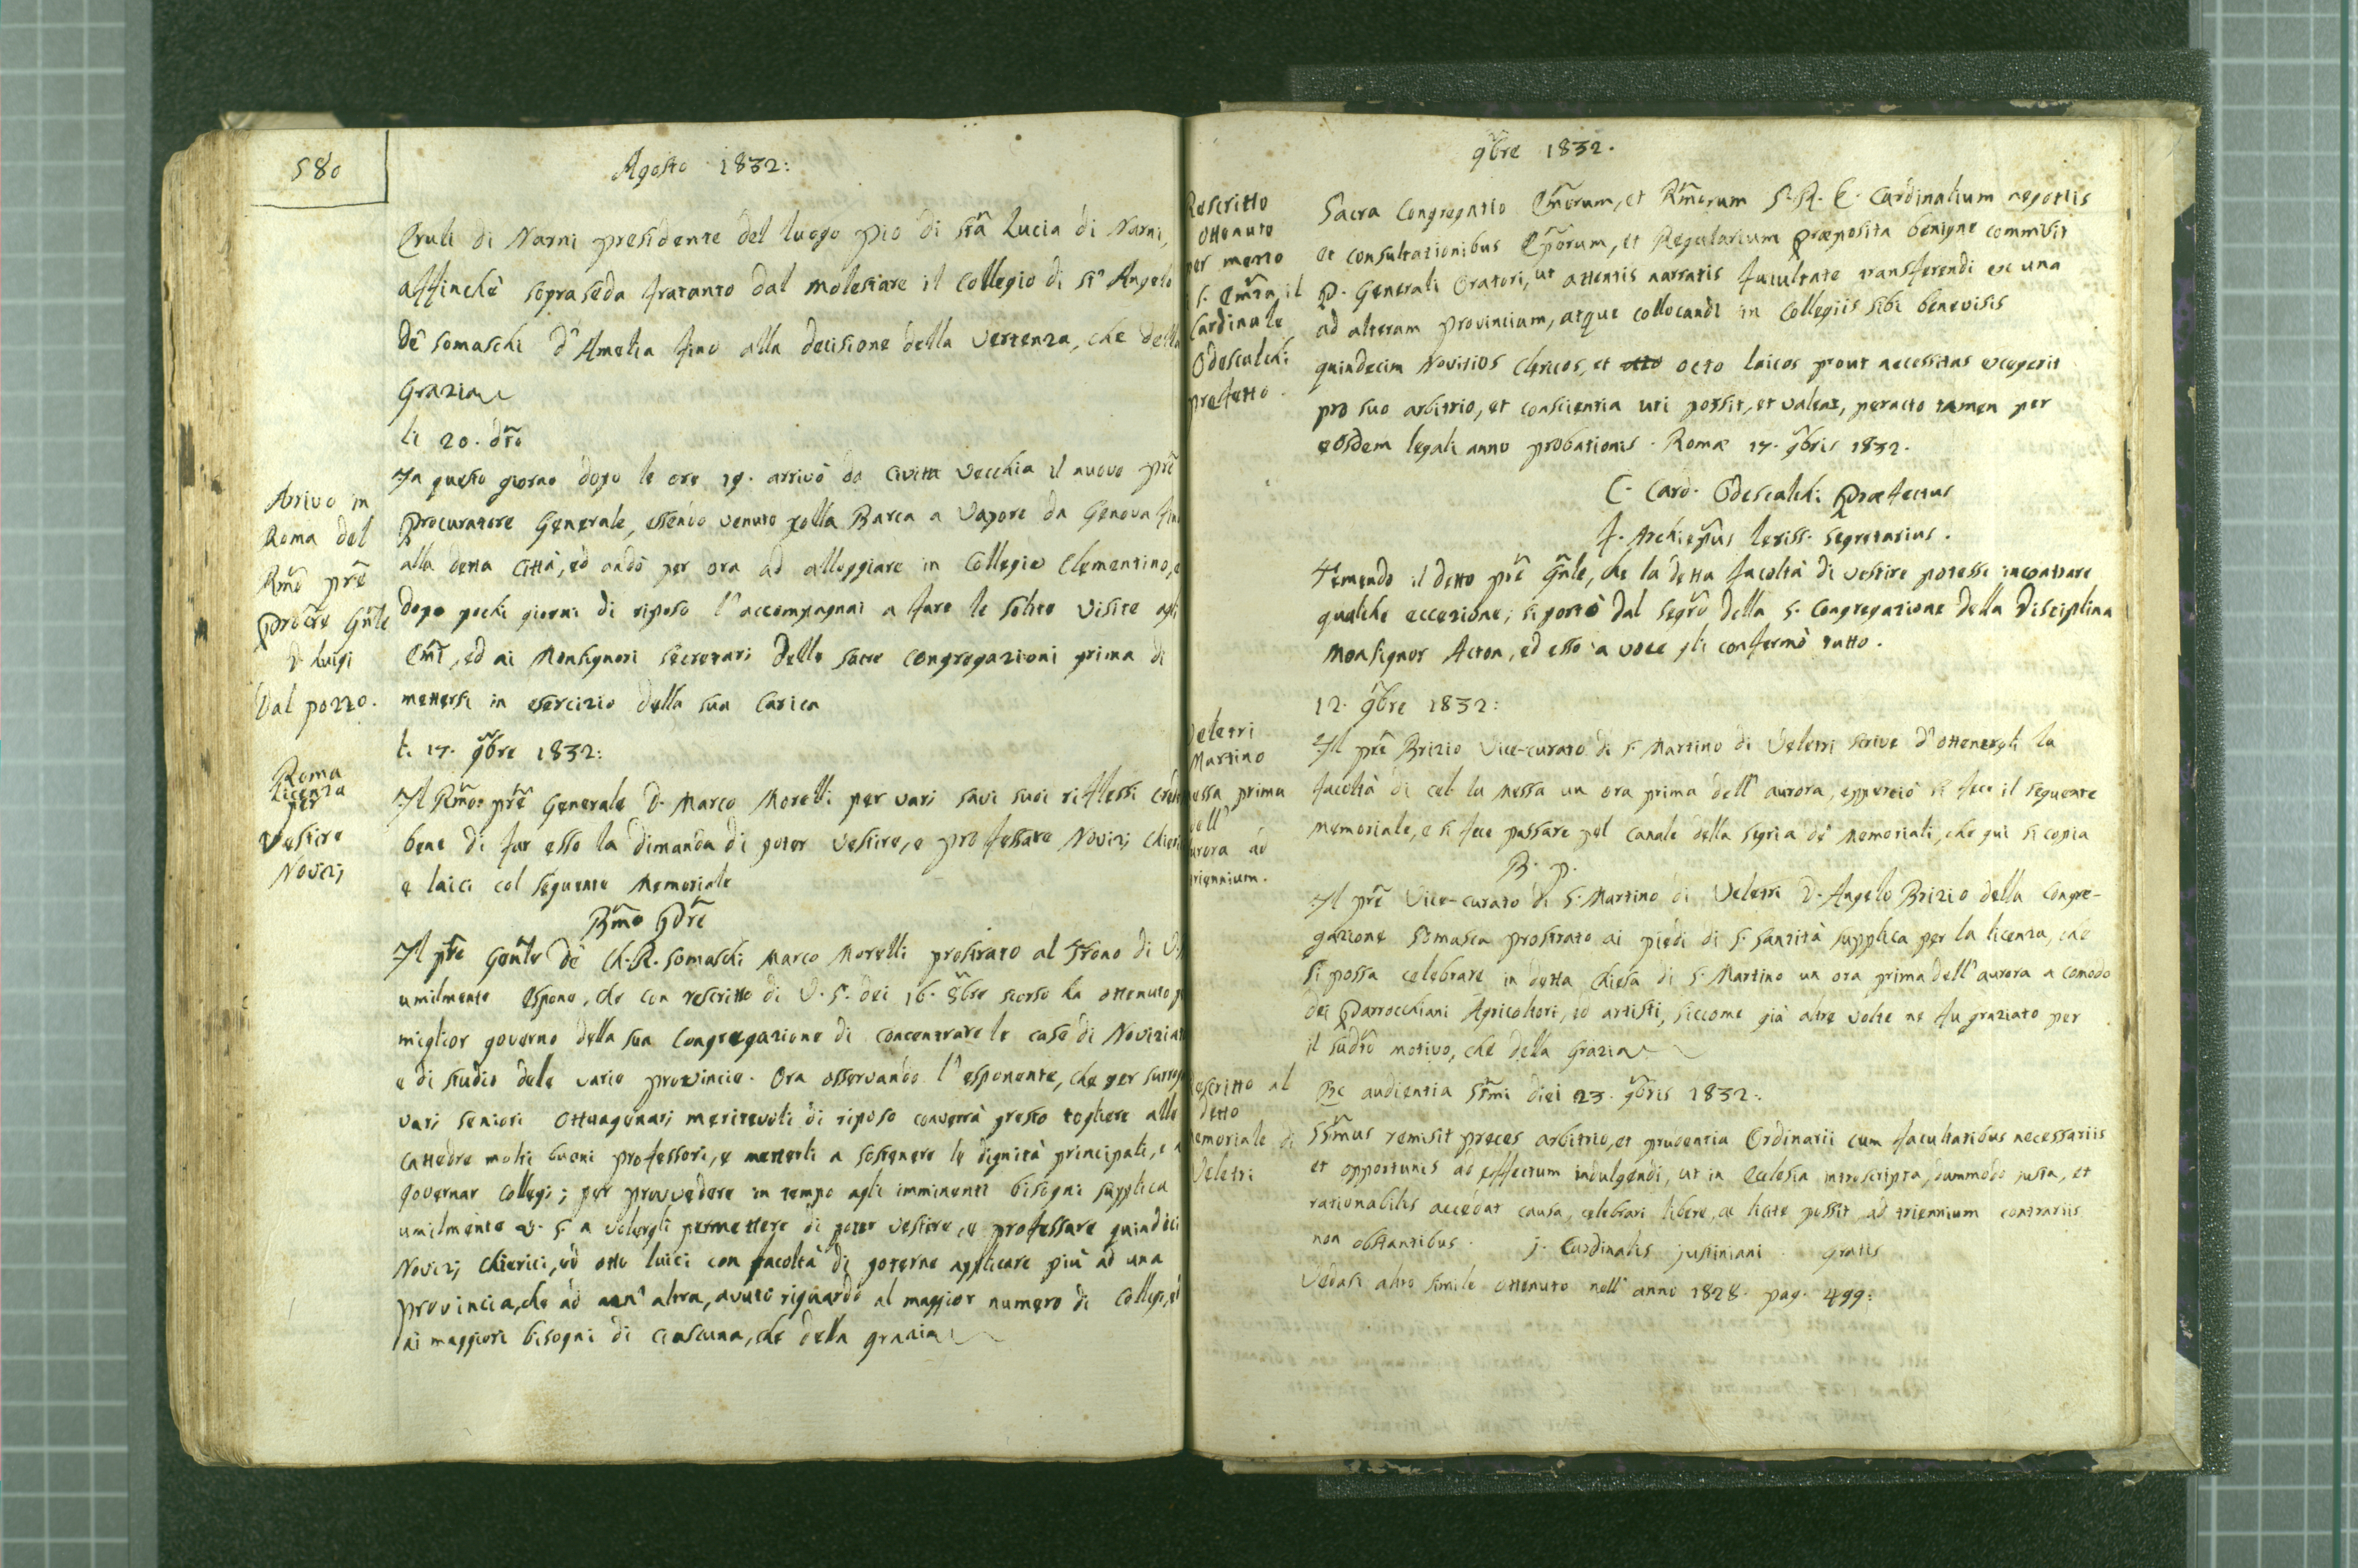 580
Agosto 1832:
Eruli di Narni presidente del luogo pio di Sta Lucia di Narni,
affinchè sopraseda fratanto dal molestare il Collegio di St Angelo
de' Somaschi d'Amelia fino alla decisione della vertenza, che della
Grazia
li 20. dto
Arrivo in
Roma del
Rmo pre
Procre Gnle
D. Luigi
Dal pozzo.
In questo giorno dopo le ore 19. arrivò da Civitta Vecchia il nuovo pre
Procuratore Generale, essendo venuto colla Barca a Vapore da Genova fino
alla detta Città, ed andò per ora ad alloggiare in Collegio Clementino, e
dopo pochi giorni di riposo l'accompagnai a fare le solite visite agli
Emi, ed ai Monsignori Secretari delle Sacre Congregazioni prima di
mettersi in esercizio della sua Carica
li 17. 9bre 1832:
Roma
Licenza
per
Vestire
Novizj
Il Rmo: pre Generale D. Marco Morelli per vari savi suoi riflessi
bene di far esso la dimanda di poter vestire, e professare Novizj
e laici col seguente Memoriale
Bmo Pdre
Il pre Gente de' Ch. R. Somaschi Marco Morelli prostrato al Trono di V.
umilmente espone, che con rescritto di V. S. dei 16. 8bre scorso ha ottenuto
miglior governo della sua Congregazione di concentrare le case di
e di studio dele varie provincie. Ora osservando l'esponente, che per
vari seniori Ottuagenari meritevoli di riposo converrà presto togliere alle
Cattedre molti buoni professori, e metterli a sostenere le dignità principali, e a
governar Collegi; per provvedere in tempo agli imminenti bisogni supplica
umilmente V. S. a volergli permettere di poter vestire, e professare quindici
Novizj Chierici, ed otto laici con facoltà di poterne applicare più ad una
provincia, che ad un'altra, avuto riguardo al maggior numero di Collegi, ed
ai maggiori bisogni di ciascuna, che della grazia
9bre 1832.
Rescritto
Ottenuto
per mezzo
S. Emza il
Cardinale
Odescalchi
prefetto.
Sacra Congregatio Emorum, et Rmorum S. R. E. Cardinalium negotiis
et consultationibus Eporum, et Regularium Præposita benigne commisit
P. Generali Oratori, ut attentis narratis facultate transferendi ex una
ad alteram provinciam, atque collocandi in Collegiis sibi benevisis
quindecim Novitios Clericos, et otto octo laicos prout necessitas exegerit
pro suo arbitrio, et conscientia uti possit, et valeat, peracto tamen per
eosdem legali anno probationis. Romæ 17. 9bris 1832.
C. Card. Odescalchi Præfectus
J. Archiepus Segretarius.
Temendo il detto pre Gnle, che la detta facoltà di vestire potesse incontrare
qualche eccezione; si portò dal Segro della S. Congregazione della Disciplina
Monsignor Acton, ed esso a voce gli confermò tutto.
12. 9bre 1832:
Veletri
Martino
essa prima
dell'
urora ad
triennium.
Il pre Brizio Vice-curato di S. Martino di Veletri scrive d'ottenergli la
facoltà di cel. la messa un ora prima dell'aurora, epperciò si fece il seguente
memoriale, e si fece passare pel Canale della Segria de' Memoriali, che qui si copia
B. P.
Il pre Vice-curato di S. Martino di Veletri D. Angelo Brizio della Congre-
gazione Somasca prostrato ai piedi di S. Santità supplica per la licenza, che
si possa celebrare in detta Chiesa di S. Martino un ora prima dell'aurora a comodo
dei Parrocchiani Agricoltori, ed artisti, siccome già altre volte ne fu graziato per
il sudto motivo, che della Grazia
Rescritto al
detto
emoriale di
Veletri
Ex audientia SSmi diei 23. 9bris 1832.
SSmus remisit preces arbitrio, et prudentia Ordinarii cum facultatibus necessariis
et opportunis ad effectum indulgendi, ut in Ecclesia introscripta, dummodo justa, et
rationabilis accedat causa, celebrari libere, ac licite possit ad triennium contrariis
non obstantibus. J. Cardinalis Justiniani gratis
Vedasi altro simile ottenuto nell'anno 1828. pag. 499: